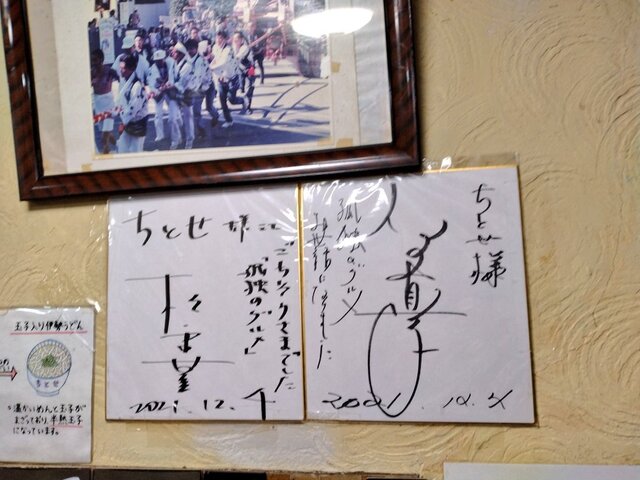 ちとせ 様江
ごちソウさまでした
「孤独のグルメ」
松重豊
2021.12.4
ちとせ様
孤独のグルメ
お世話になりました
2021.12.4
玉子入り伊勢うどん
ちとせ
温かいめんと玉子が
まざっており、半熟玉子
になっています。